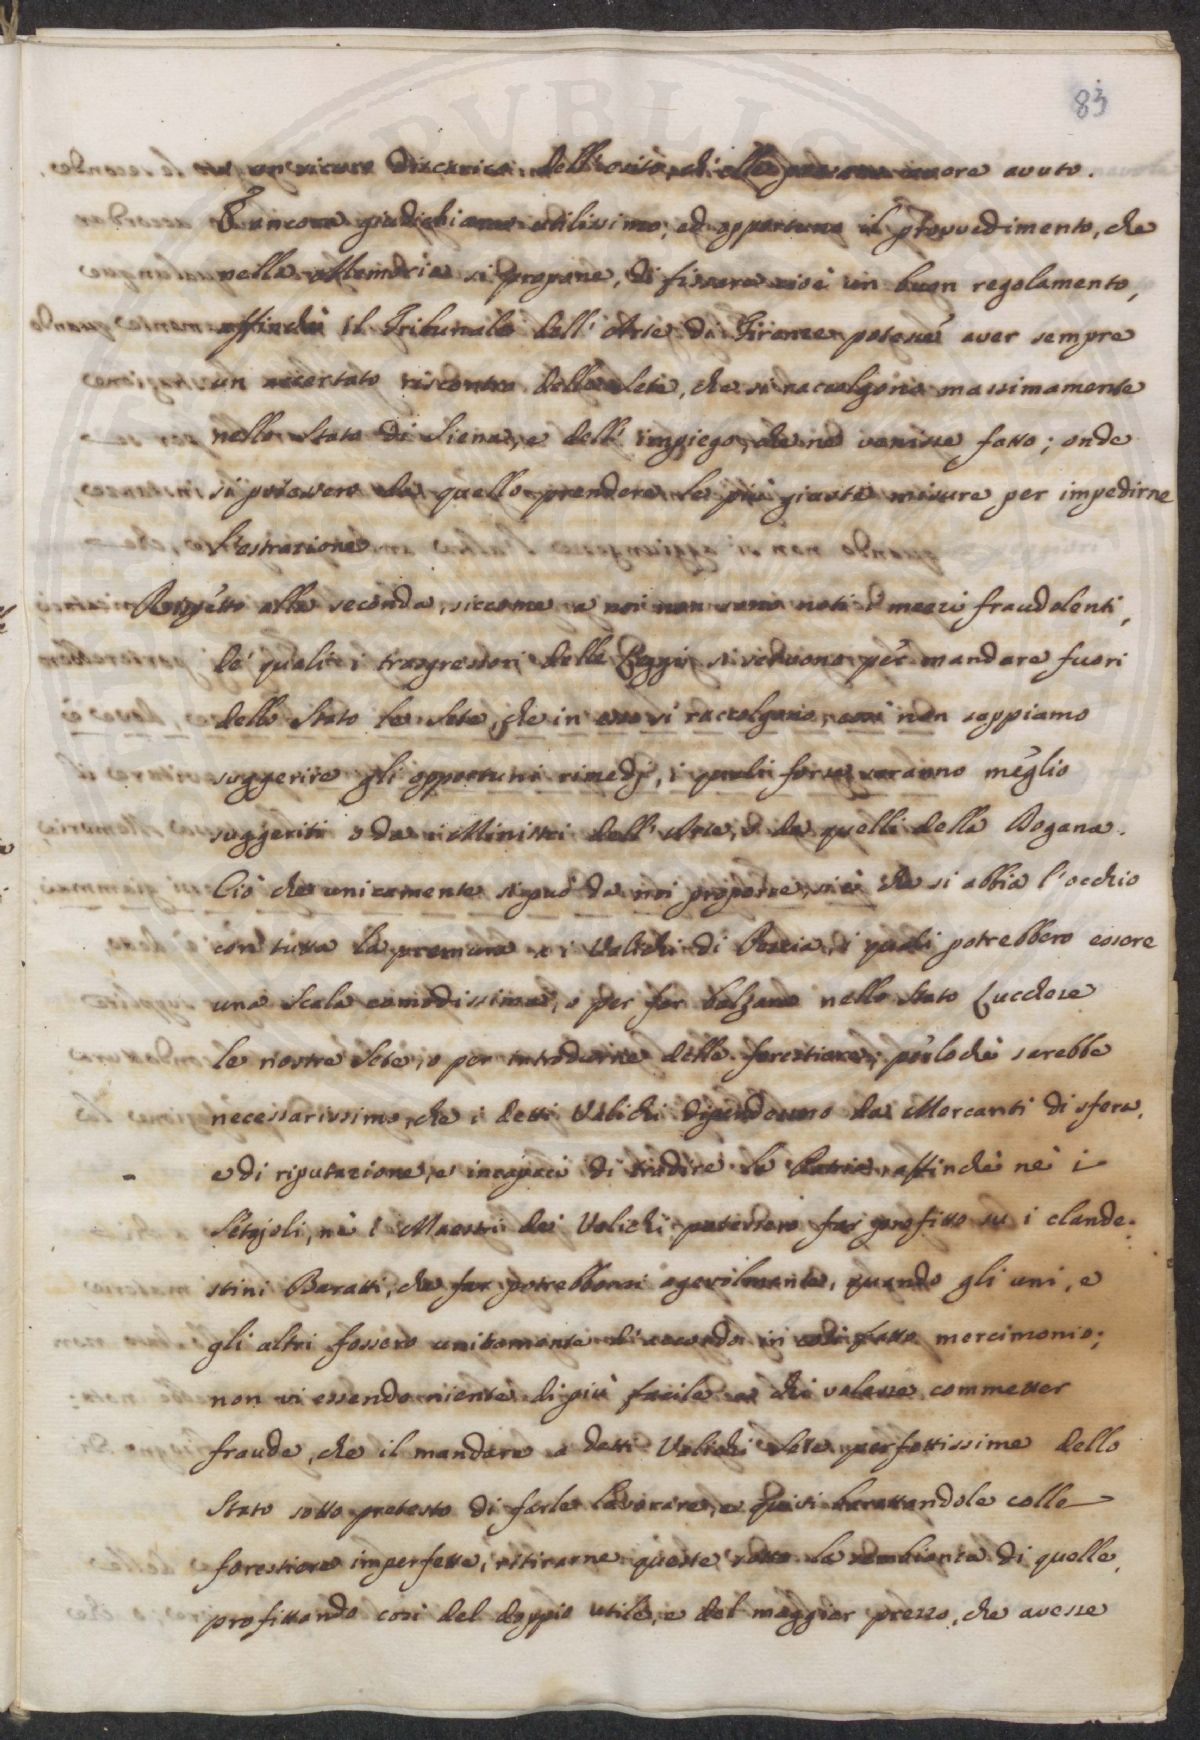 83
un sicuro discarico dell'esito, ch'elle avere avuto.
E ancora giudichiamo utilissimo, ed opportuno il provvedimento, che
nella Memoria si propone, di fissare cioè un buon regolamento,
affinchè il Tribunale dell'Arte di Firenze potesse aver sempre
un accertato riscontro delle Sete, che si raccolgono massimamente
nello Stato di Siena, e dell'impiego, che ne venisse fatto; onde
si potessero da quello prendere le più giuste misure per impedirne
l'estrazione.
Rispetto alla seconda, siccome a noi non sono noti i mezzi fraudolenti,
de' quali i trasgressori delle Leggi si servono per mandare fuori
dello Stato le Sete, che in esso si raccolgono, così non sappiamo
suggerire gli opportuni rimedj, i quali forse saranno meglio
suggeriti o da i Ministri dell'Arte, o da quelli della Dogana.
Ciò che unicamente si può da noi proporre, si è che si abbia l'occhio
con tutta la premura a i Valichi di Pescia, i quali potrebbero essere
una Scala comodissima, o per far balzare nello Stato Lucchese
le nostre Sete, o per introdurne delle forestiere; perlochè sarebbe
necessarissimo, che i detti Valichi dipendessero da Mercanti di sfera,
e di riputazione, e incapaci di tradire la Patria, affinchè nè i
Setajoli, nè i Maestri dei Valichi potessero far profitto su i clande:
stini Baratti, che far potrebbonsi agevolmente, quando gli uni, e
gli altri fossero unitamente di accordo in così fatto mercimonio;
non vi essendo niente di più facile a chi volesse commetter
fraude, che il mandare a detti Valichi Sete perfettissime dello
Stato sotto pretesto di farle lavorare, e quivi barattandole colle
forestiere imperfette, ritirarne queste sotto la sembianza di quelle,
profittando così del doppio utile, e del maggior prezzo, che avesse